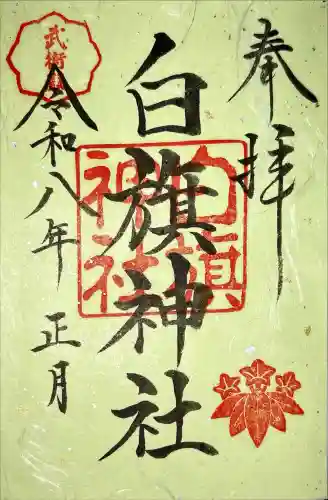 奉拝
白旗神社
白旗
神社
令和八年 正月
武衛